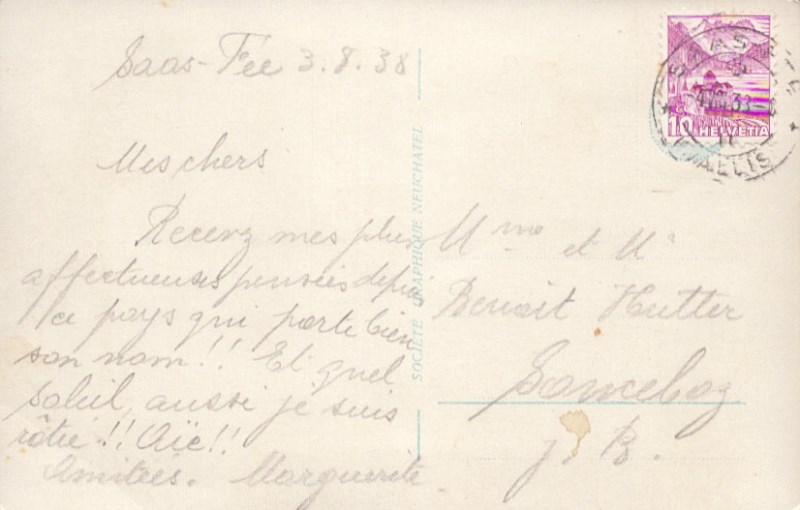 Saas-Fée 3.8.38
Mes chers
Recevez mes plus
affectueuses pensées depuis
ce pays qui porte bien
son nom!! Et quel
soleil, aussi je suis
rôtie!! Aïe!!
Amitiés. Marguerite
SOCIÉTÉ GRAPHIQUE NEUCHATEL
10 HELVETIA
Mme et M
Benoit Hutter
Sonceboz
J. B.